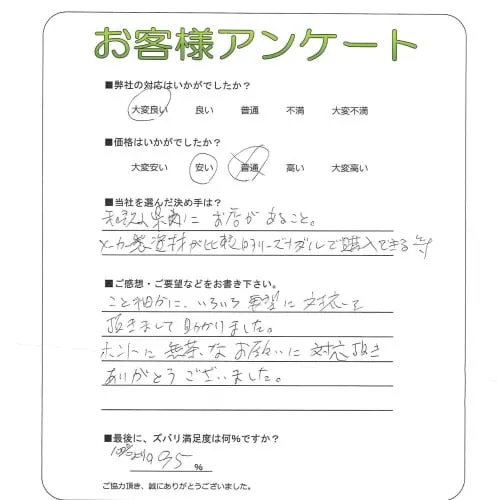 お客様アンケート
■弊社の対応はいかがでしたか?
大変良い 良い 普通 不満 大変不満
■価格はいかがでしたか?
大変安い 安い 普通 高い 大変高い
■当社を選んだ決め手は?
県内に お店が あること。
メーカー製資材が比較的リーズナブルで購入できる
■ご感想・ご要望などをお書き下さい。
こと細かに、いろいろ 要望に 対応して
頂きまして 助かりました。
ホントに 無茶な お願いに 対応頂き
ありがとうございました。
■最後に、ズバリ満足度は何%ですか?
95 %
ご協力頂き、誠にありがとうございました。